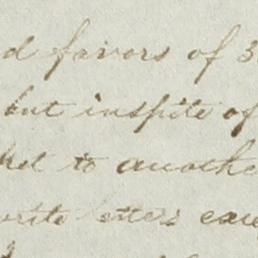 d favors of 3
but inspite of
to anothe
write letters